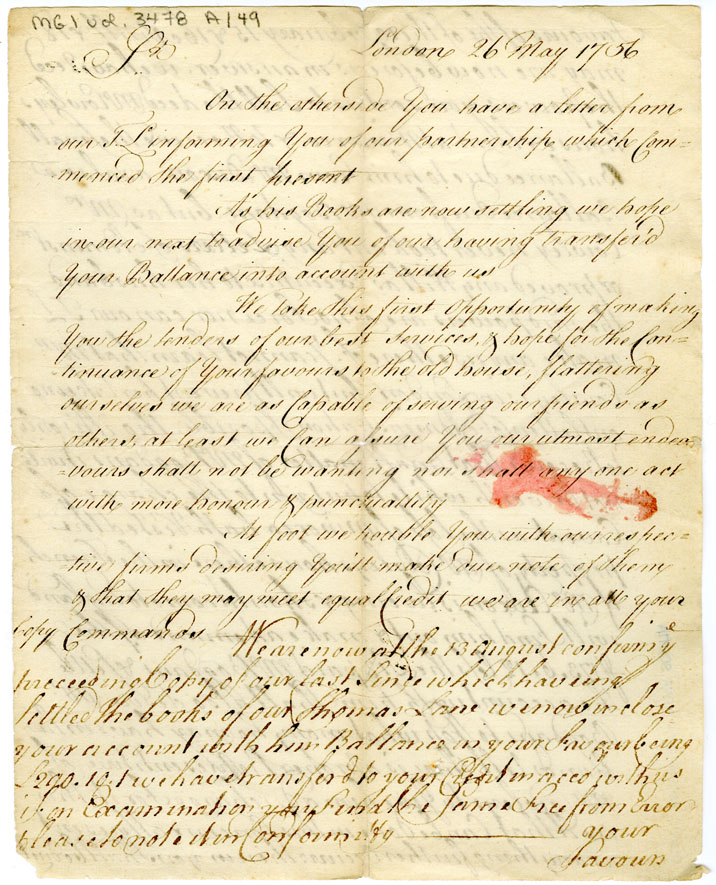 MG 1 Vol. 3478 A/149
Sr London 26 May 1756
On the otherside You have a letter from
our T. L informing You of our partnership which Com=
=menced the first present
As his Books are now settling we hope
in our next to advise You of our having transfer'd
Your Ballance into account with us
We take this first opportunity of making
You the tenders of our best Services, & hope for the Con=
=tinuance of Your favours to the old house, flattering
ourselves we are as Capable of serving our friends as
others, at least we Can assure You our utmost endea=
=vours shall not be wanting nor shall any one act
with more honour & punctuallity
At foot we trouble You with our respec=
=tive firms desiring You'll make due note of them
& that they may meet equal Credit we are in all your
Copy Commands We are now at the 13 august confirmg e
preceeding Copy of our last Since which having
Settled the books of our Thomas Lane we now inclose
your account with him Ballance in your Favour being
£290.10.1 we have transferd to your Credit in acco with us
if on Examination you find the Same Free from Error
please to note it in Conformity your
Favours